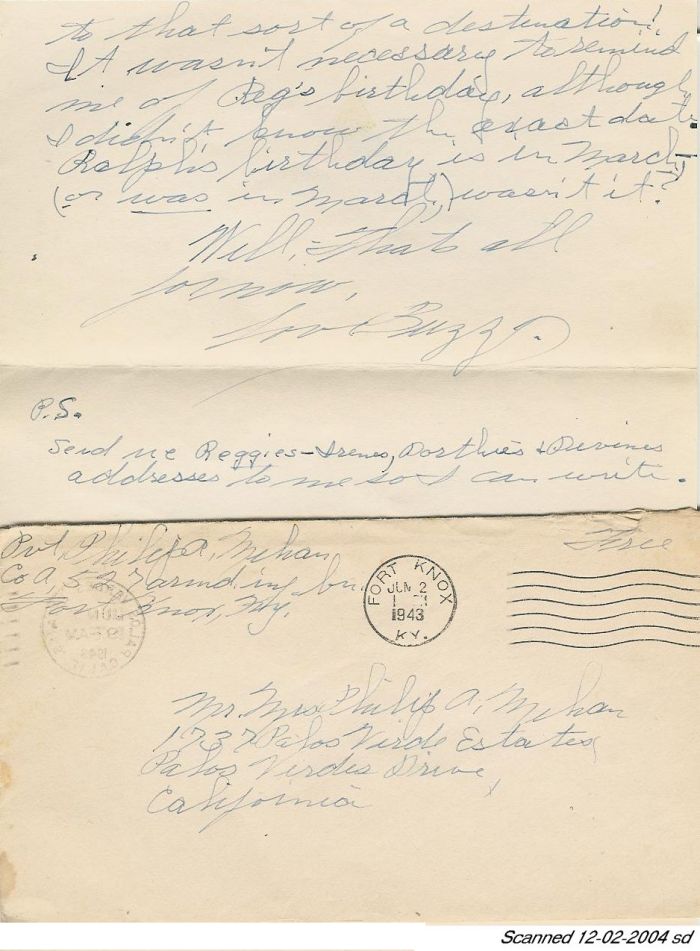 to that sort of a destination!
It wasn't necessary to remind
me of Reg's birthday, although
I didn't know the exact date.
Ralph's birthday is in March,
(or was in March,) wasn't it?
Well, that's all
for now,
Buzz.
P.S.
Send me Reggies - Irenes, Dorthies &
addresses to me so I can write.
Pvt. Philip A. Mehan
Co A, 527 armd inf bn.
Fort Knox, Ky.
Free
FORT KNOX
JUN 2
1943
KY.
Mr. Mrs Philip A. Mehan
1737 Palos Virde Estates,
Palos Verdes Drive,
California
Scanned 12-02-2004 sd